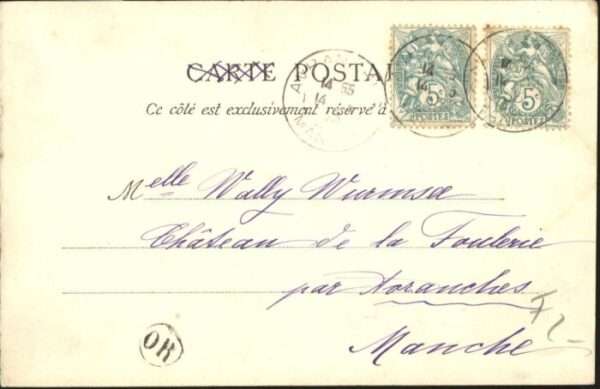 CARTE POSTA
Ce côté est exclusivement réservé à
5c 5c
POSTES POSTES
Melle Wally Wurmsee
Château de la Foulerie
par Avranches
Manche
OR